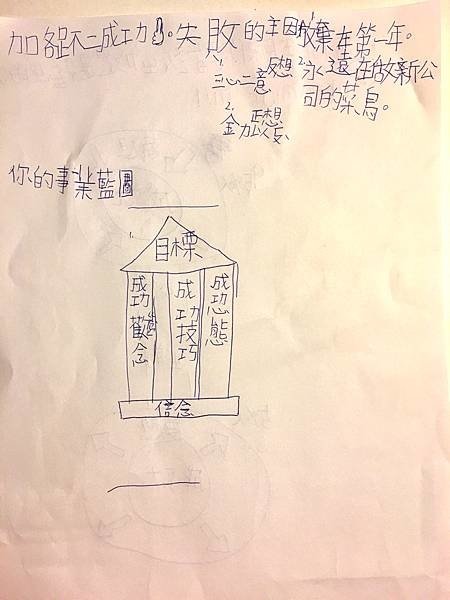 加盟不二成功。失敗的主因1.放棄在第一年。
1.三心二意 反想 2.永遠在做新公
2. 司的菜鳥。
你的事業藍圖
1.
目標
成功觀念
成功技巧
成功態態
信念